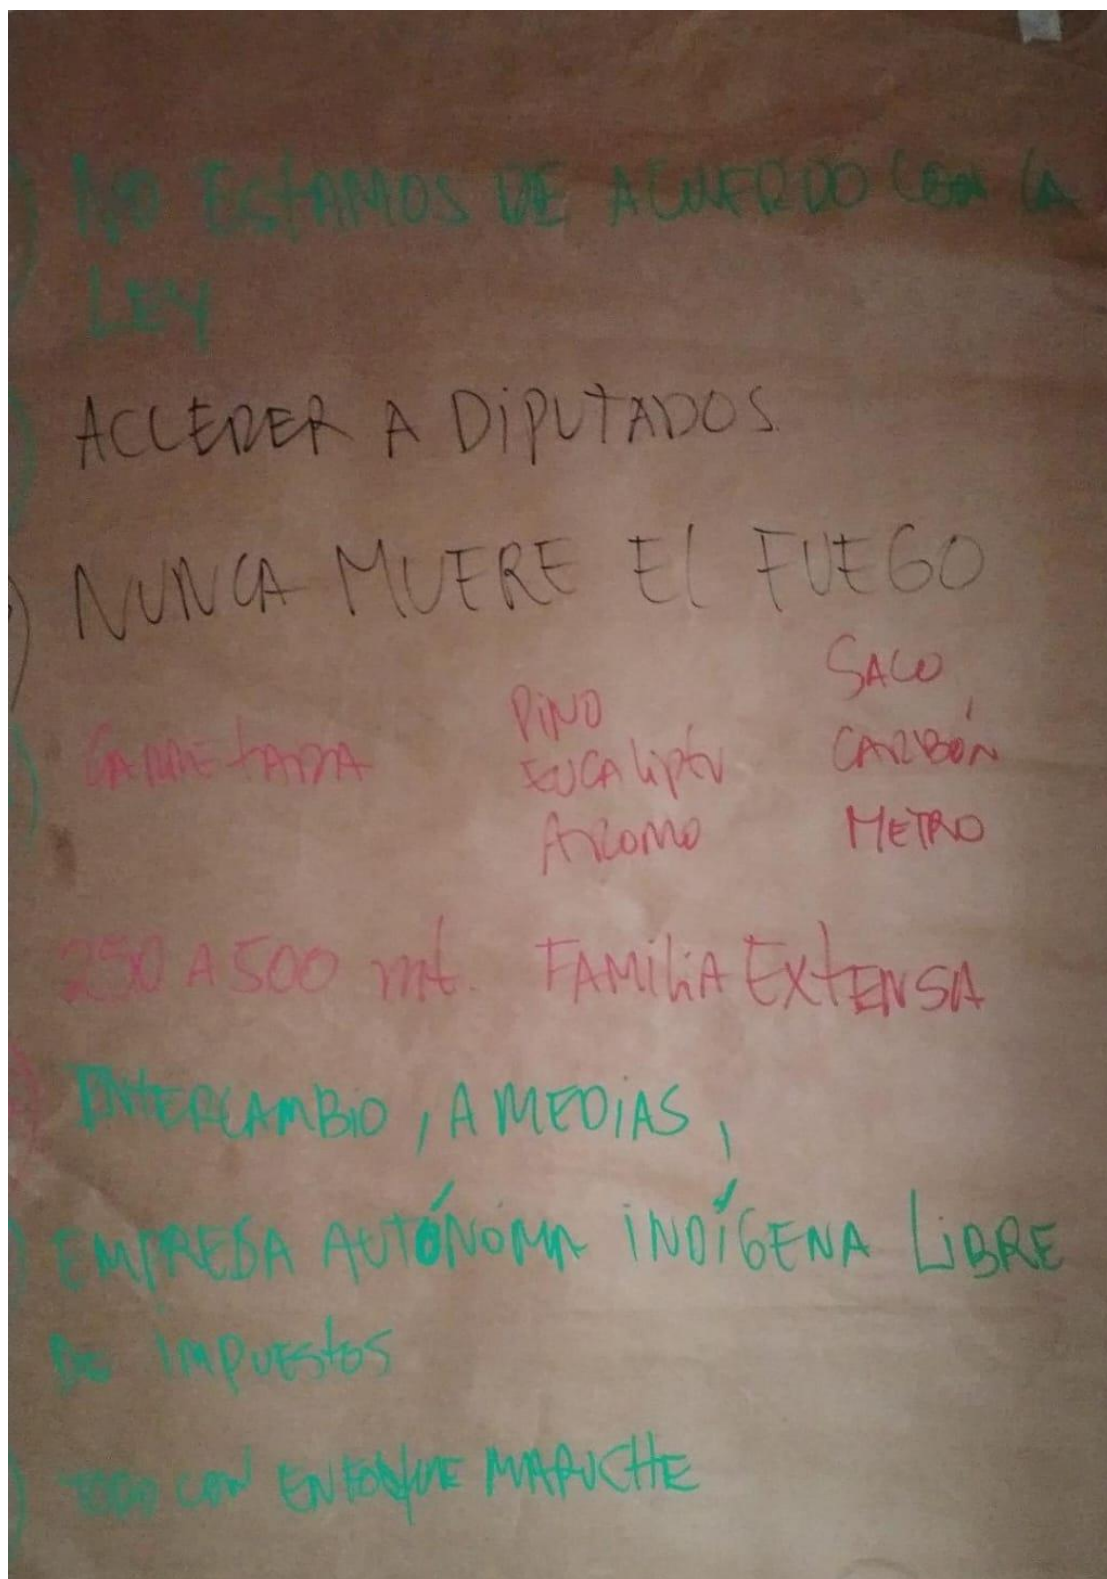 NO EStAMOS DE ACUERDO CON LA
LEY
ACCEDER A DiPUTADOS.
NUNCA MUERE El FUEGO
SACO
PiNO
CARRETADA
EUCAliptu
CARBÓN
AROMO
METRO
250 A 500 mt. FAMiliA EXtENSA
INtERCAMBiO, A MEDiAS,
EMPRESA AUTÓNOMA iNDÍGENA LiBRE
De IMPUEStOS
TODO CON ENFOQUE MAPUCHE